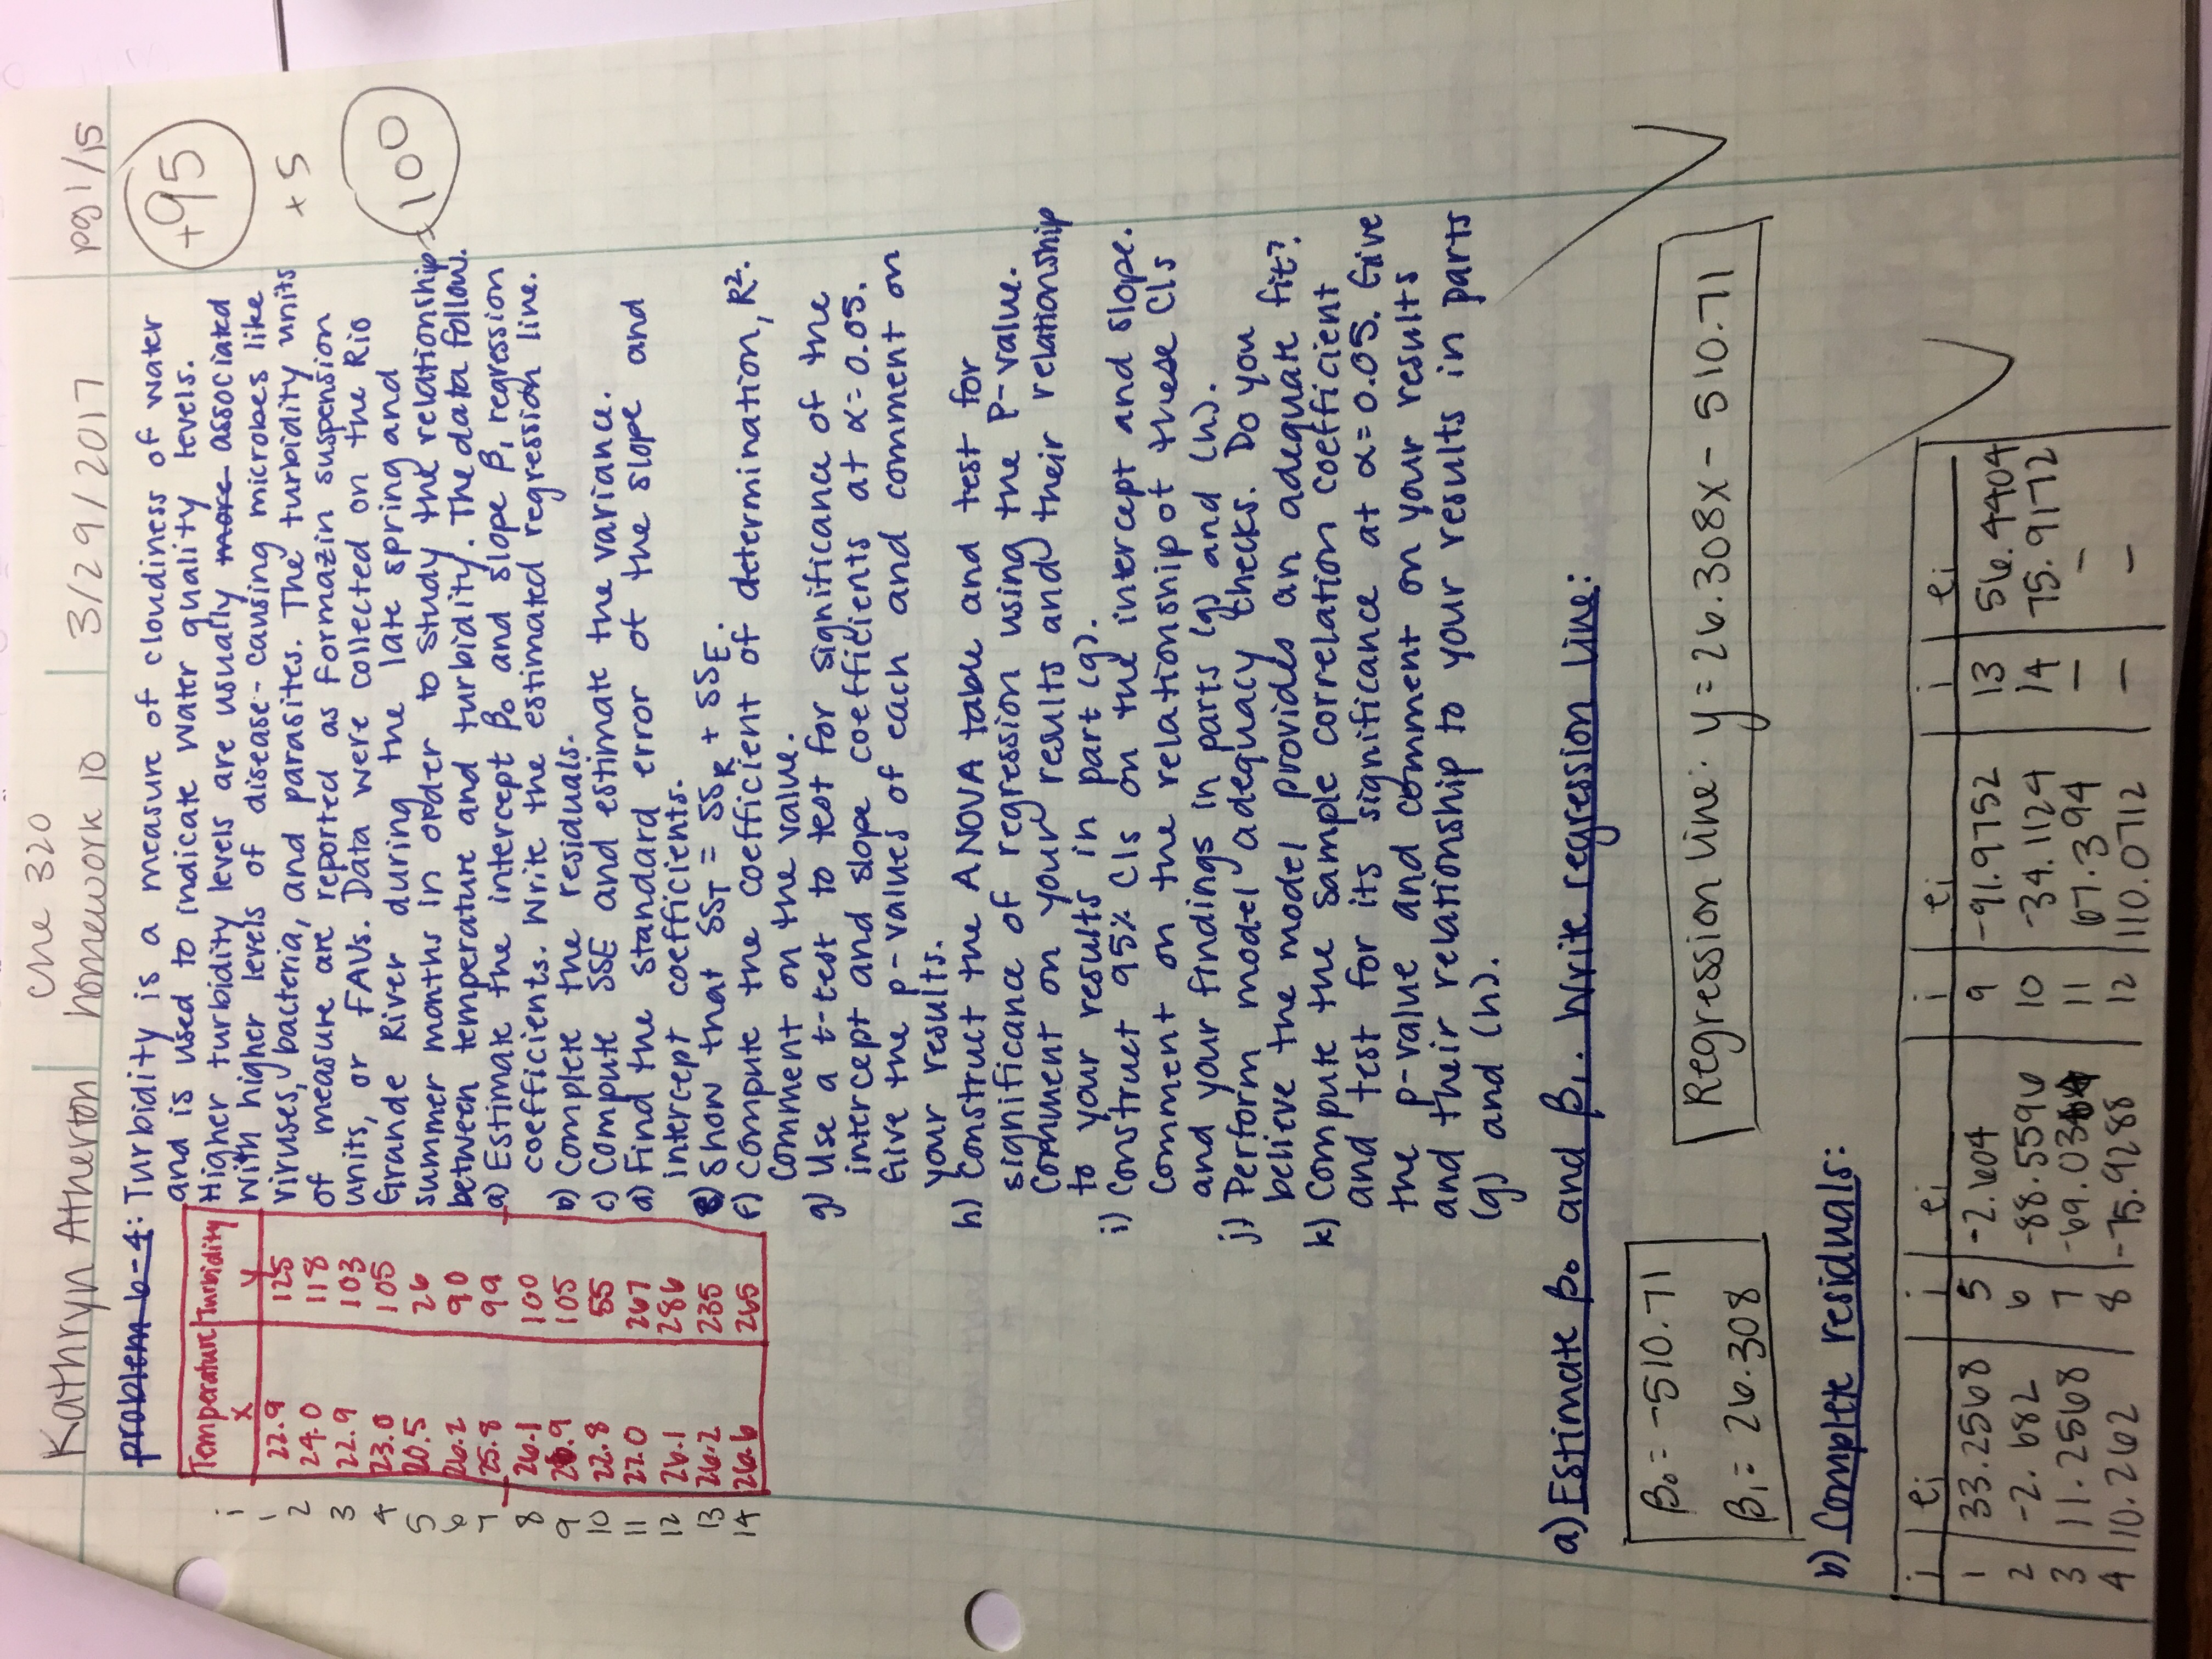 Kathryn Atherton
che 320
homework 10
3/29/2017
pg 1/15
problem 6-4: Turbidity is a measure of cloudiness of water
and is used to indicate water quality levels.
Higher turbidity levels are usually more associated
with higher levels of disease-causing microbes like
viruses, bacteria, and parasites. The turbidity units
of measure are reported as Formazin suspension
units, or FAUs. Data were collected on the Rio
Grande River during the late spring and
summer months in order to study the relationship
between temperature and turbidity. The data follow.
+95
+5
= 100
i Temperature x Turbidity y
1 22.9 125
2 24.0 118
3 22.9 103
4 23.0 105
5 20.5 26
6 26.2 90
7 25.8 99
8 26.1 100
9 26.9 105
10 22.8 55
11 27.0 267
12 26.1 286
13 26.2 235
14 26.6 265
a) Estimate the intercept β₀ and slope β₁ regression
coefficients. Write the estimated regression line.
b) Complete the residuals.
c) Compute SSE and estimate the variance.
d) Find the standard error of the slope and
intercept coefficients.
e) Show that SST = SSR + SSE.
f) Compute the coefficient of determination, R².
Comment on the value.
g) Use a t-test to test for significance of the
intercept and slope coefficients at α=0.05.
Give the p-values of each and comment on
your results.
h) Construct the ANOVA table and test for
significance of regression using the P-value.
Comment on your results and their relationship
to your results in part (g).
i) Construct 95% CIs on the intercept and slope.
Comment on the relationship of these CIs
and your findings in parts (g) and (h).
j) Perform model adequacy checks. Do you
believe the model provides an adequate fit?
k) Compute the sample correlation coefficient
and test for its significance at α=0.05. Give
the p-value and comment on your results
and their relationship to your results in parts
(g) and (h).
a) Estimate β₀ and β₁. Write regression line:
β₀ = -510.71
β₁ = 26.308
Regression line: y = 26.308x - 510.71
b) Complete residuals:
i ei i ei i ei i ei
1 33.2568 5 -2.604 9 -91.9752 13 56.4404
2 -2.682 6 -88.5596 10 -34.1124 14 75.9172
3 11.2568 7 11 67.394 - -
4 10.262 8 -75.9288 12 110.0712 - -